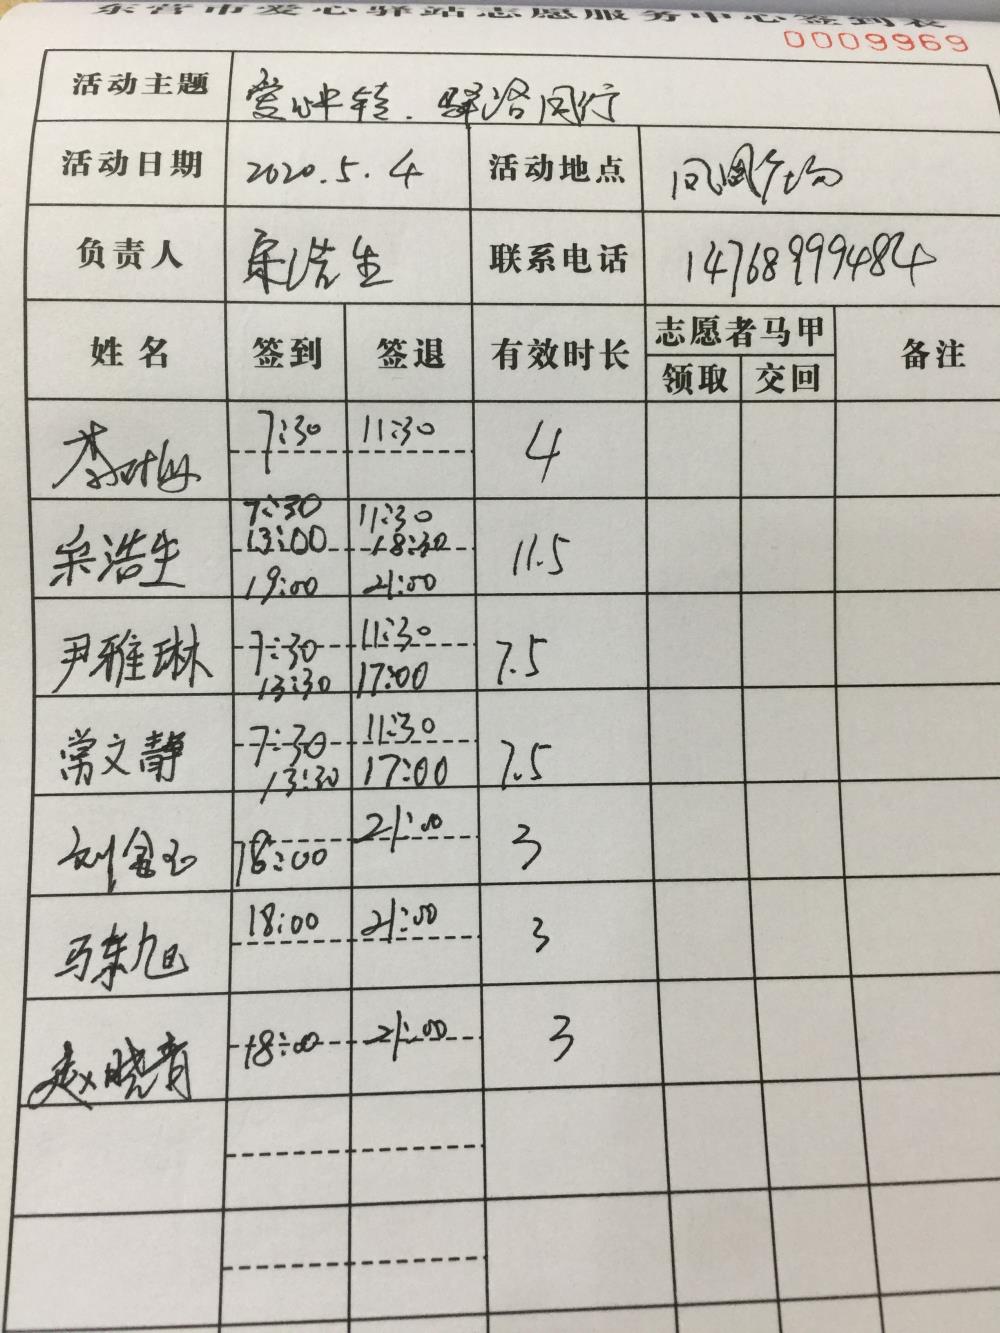 东营市爱心驿站志愿服务中心签到表
0009969
活动主题 爱心
活动日期 2020.5.4 活动地点 凤凰广场
负责人 宋浩生 联系电话 14768999484
姓名 签到 签退 有效时长 志愿者马甲 备注
领取 交回
7:30 11:30 4
宋浩生 7:30 11:30 11.5
13:00 18:30
19:00 21:00
尹雅琳 7:30 11:30 7.5
13:30 17:00
常文静 7:30 11:30 7.5
13:30 17:00
刘金玉 18:00 21:00 3
马东旭 18:00 21:00 3
赵晓青 18:00 21:00 3